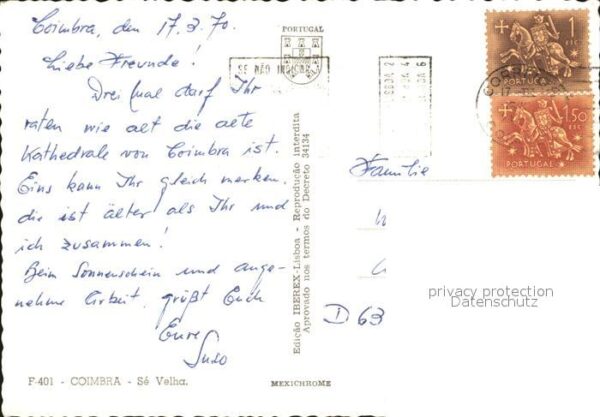 Coimbra, den 17.3.70.
Liebe Freunde!
Drei Mal darf Ihr
raten wie alt die alte
Kathedrale von Coimbra ist.
Eins kann Ihr gleich merken.
die ist älter als Ihr und
ich zusammen!
Beim Sonnenschein und ange-
nehme Arbeit, grüßt Euch
Eure
F-401 - COIMBRA - Sé Velha.
PORTUGAL
SE NÃO INDICAR
Edição IBEREX-Lisboa - Reprodução interdita
Aprovado nos termos do Decreto 34134
MEXICHROME
Familie
D 63
privacy protection
Datenschutz
1
ESC
PORTUGAL
1.50
ESC
PORTUGAL